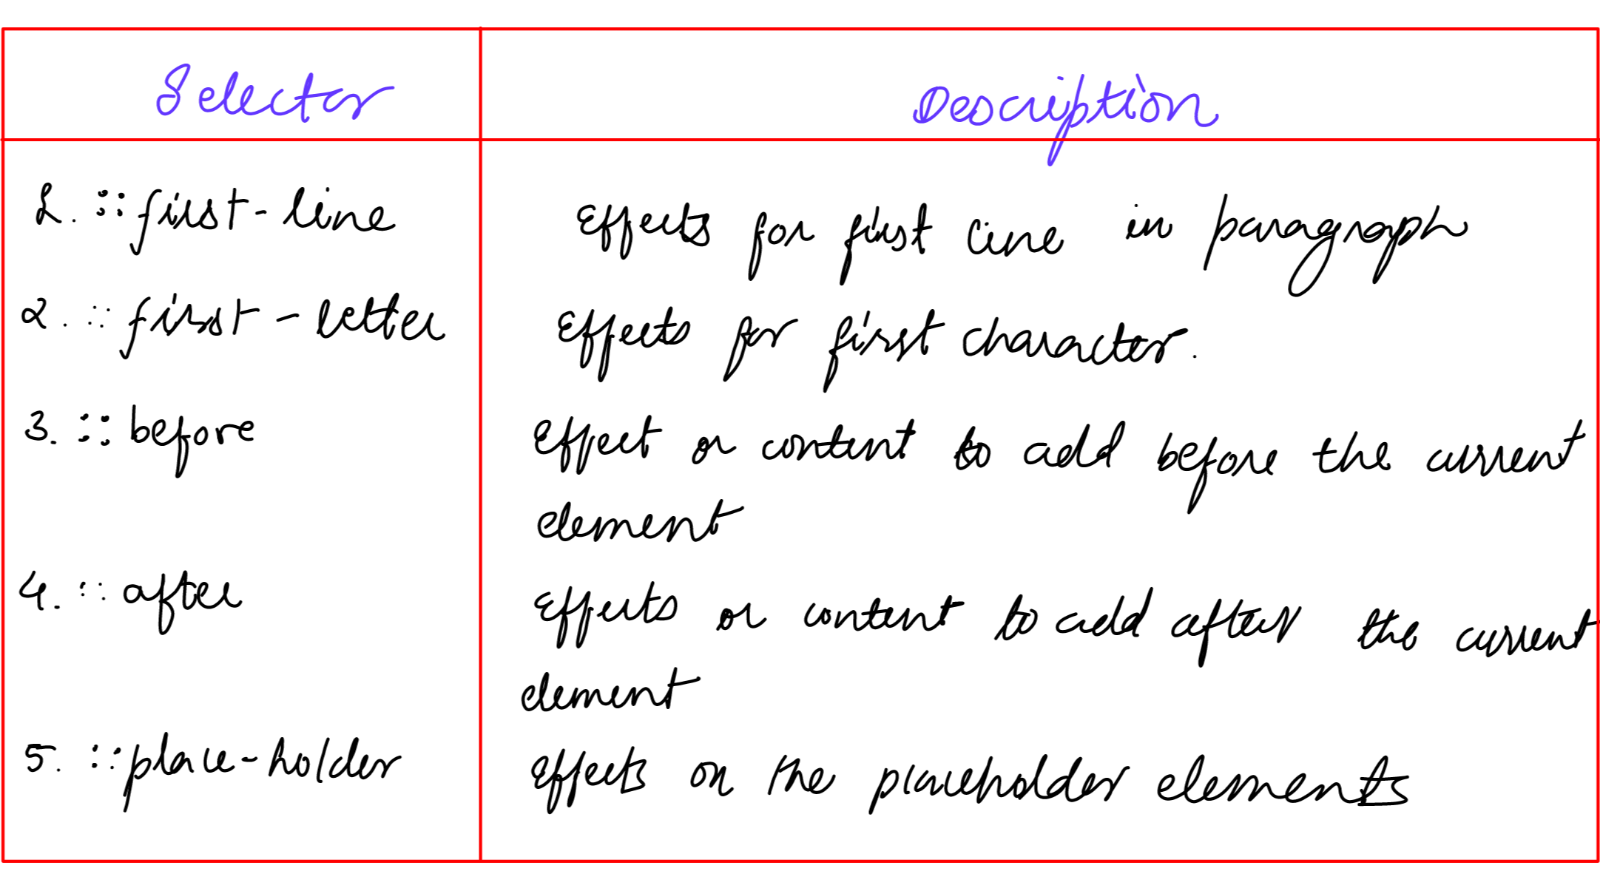 Selector Description
1. ::first-line Effects for first line in paragraph
2. ::first-letter Effects for first character.
3. ::before Effect or content to add before the current
element
4. ::after Effects or content to add after the current
element
5. ::place-holder Effects on the placeholder elements